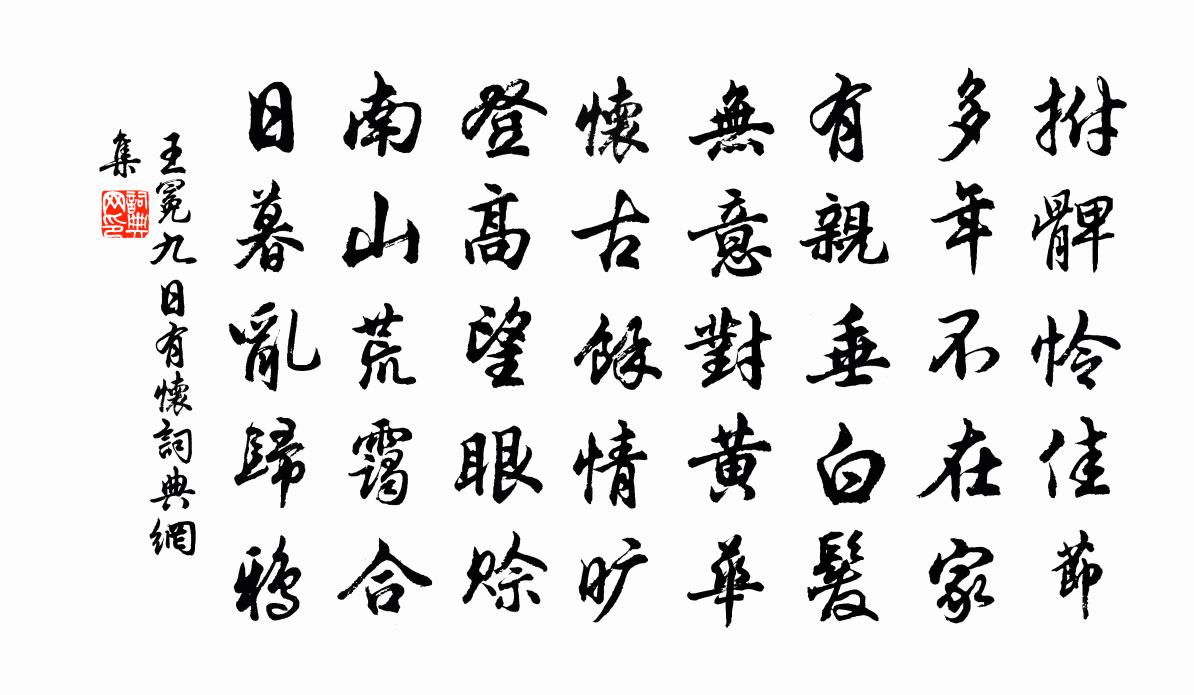 拊髀怜佳節
多年不在家
有親垂白髮
無意對黄華
懷古餘情旷
登高望眼賒
南山荒靄合
日暮亂歸鴉
王冕九日有懷詞典網
集
詞典
网印